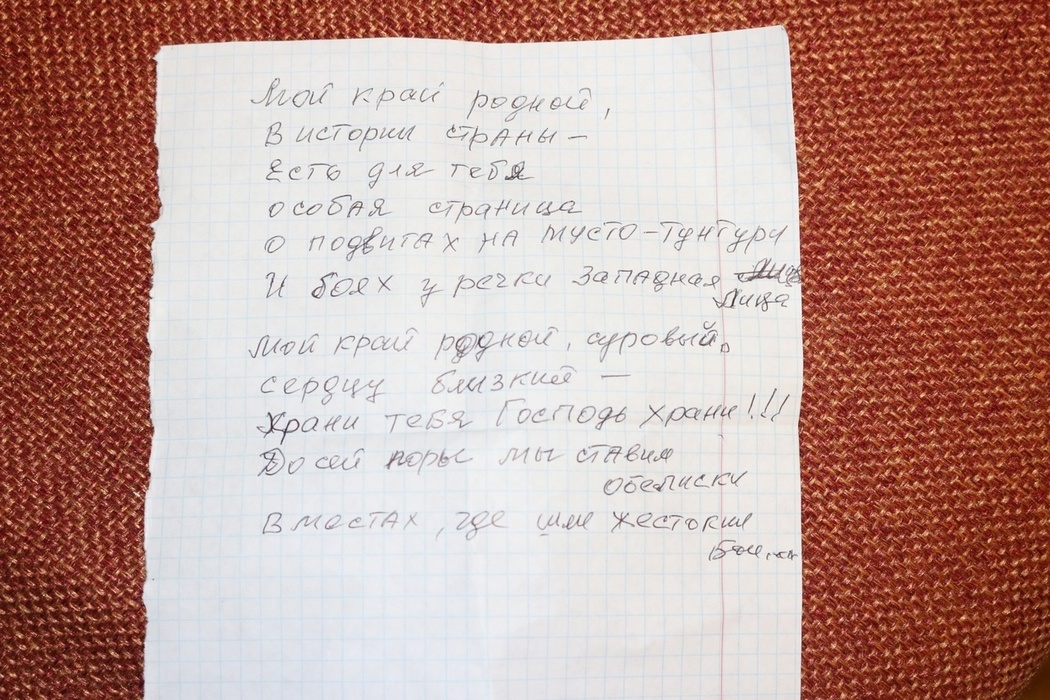 Мой край родной,
В истории страны –
Есть для тебя
особая страница
о подвигах на Мусто-Тунтури
И боях у речки Западная
Лица
Мой край родной, суровый,
сердцу близкий –
Храни тебя Господь храни!!!
До сей поры мы ставим
обелиски
В местах, где шли жестокие